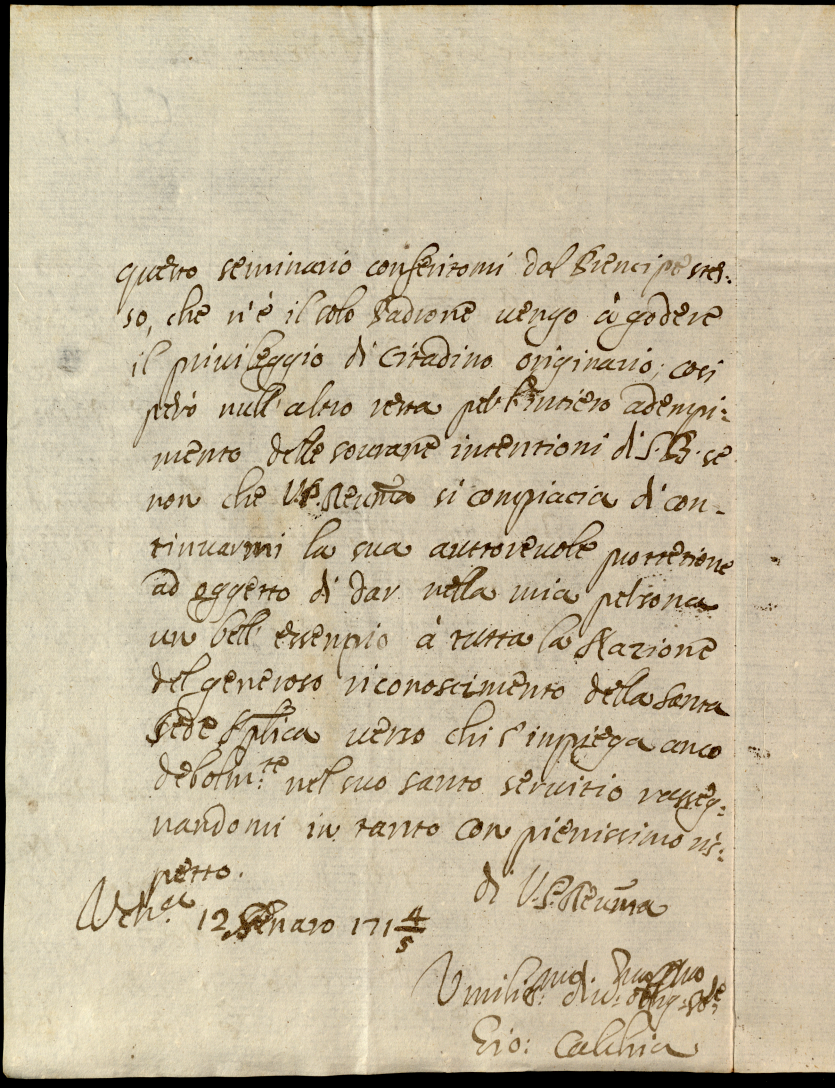 questo seminario conferitomi dal Prencipe stes:
so, che n'è il solo Padrone vengo à godere
il privileggio di Citadino originario; cosi
però null'altro resta per l'intiero adempi:
mento delle sourane intentioni di S. B. se
non che V.P. Reuma si compiacia di con-
tinuarmi la sua auttoreuole prottetione
ad oggetto di dar nella mia persona
un bell' essempio à tutta la Nazione
del generoso riconoscimento della Santa
Sede Aplica uerso chi s'impiega anco
debolmte nel suo santo seruitio rasseg:
nandomi in tanto con pienissimo ris:
petto.
di V.P. Reuma
Vena 12 Genaro 171 4/5
Umilismo
Gio: Calchia